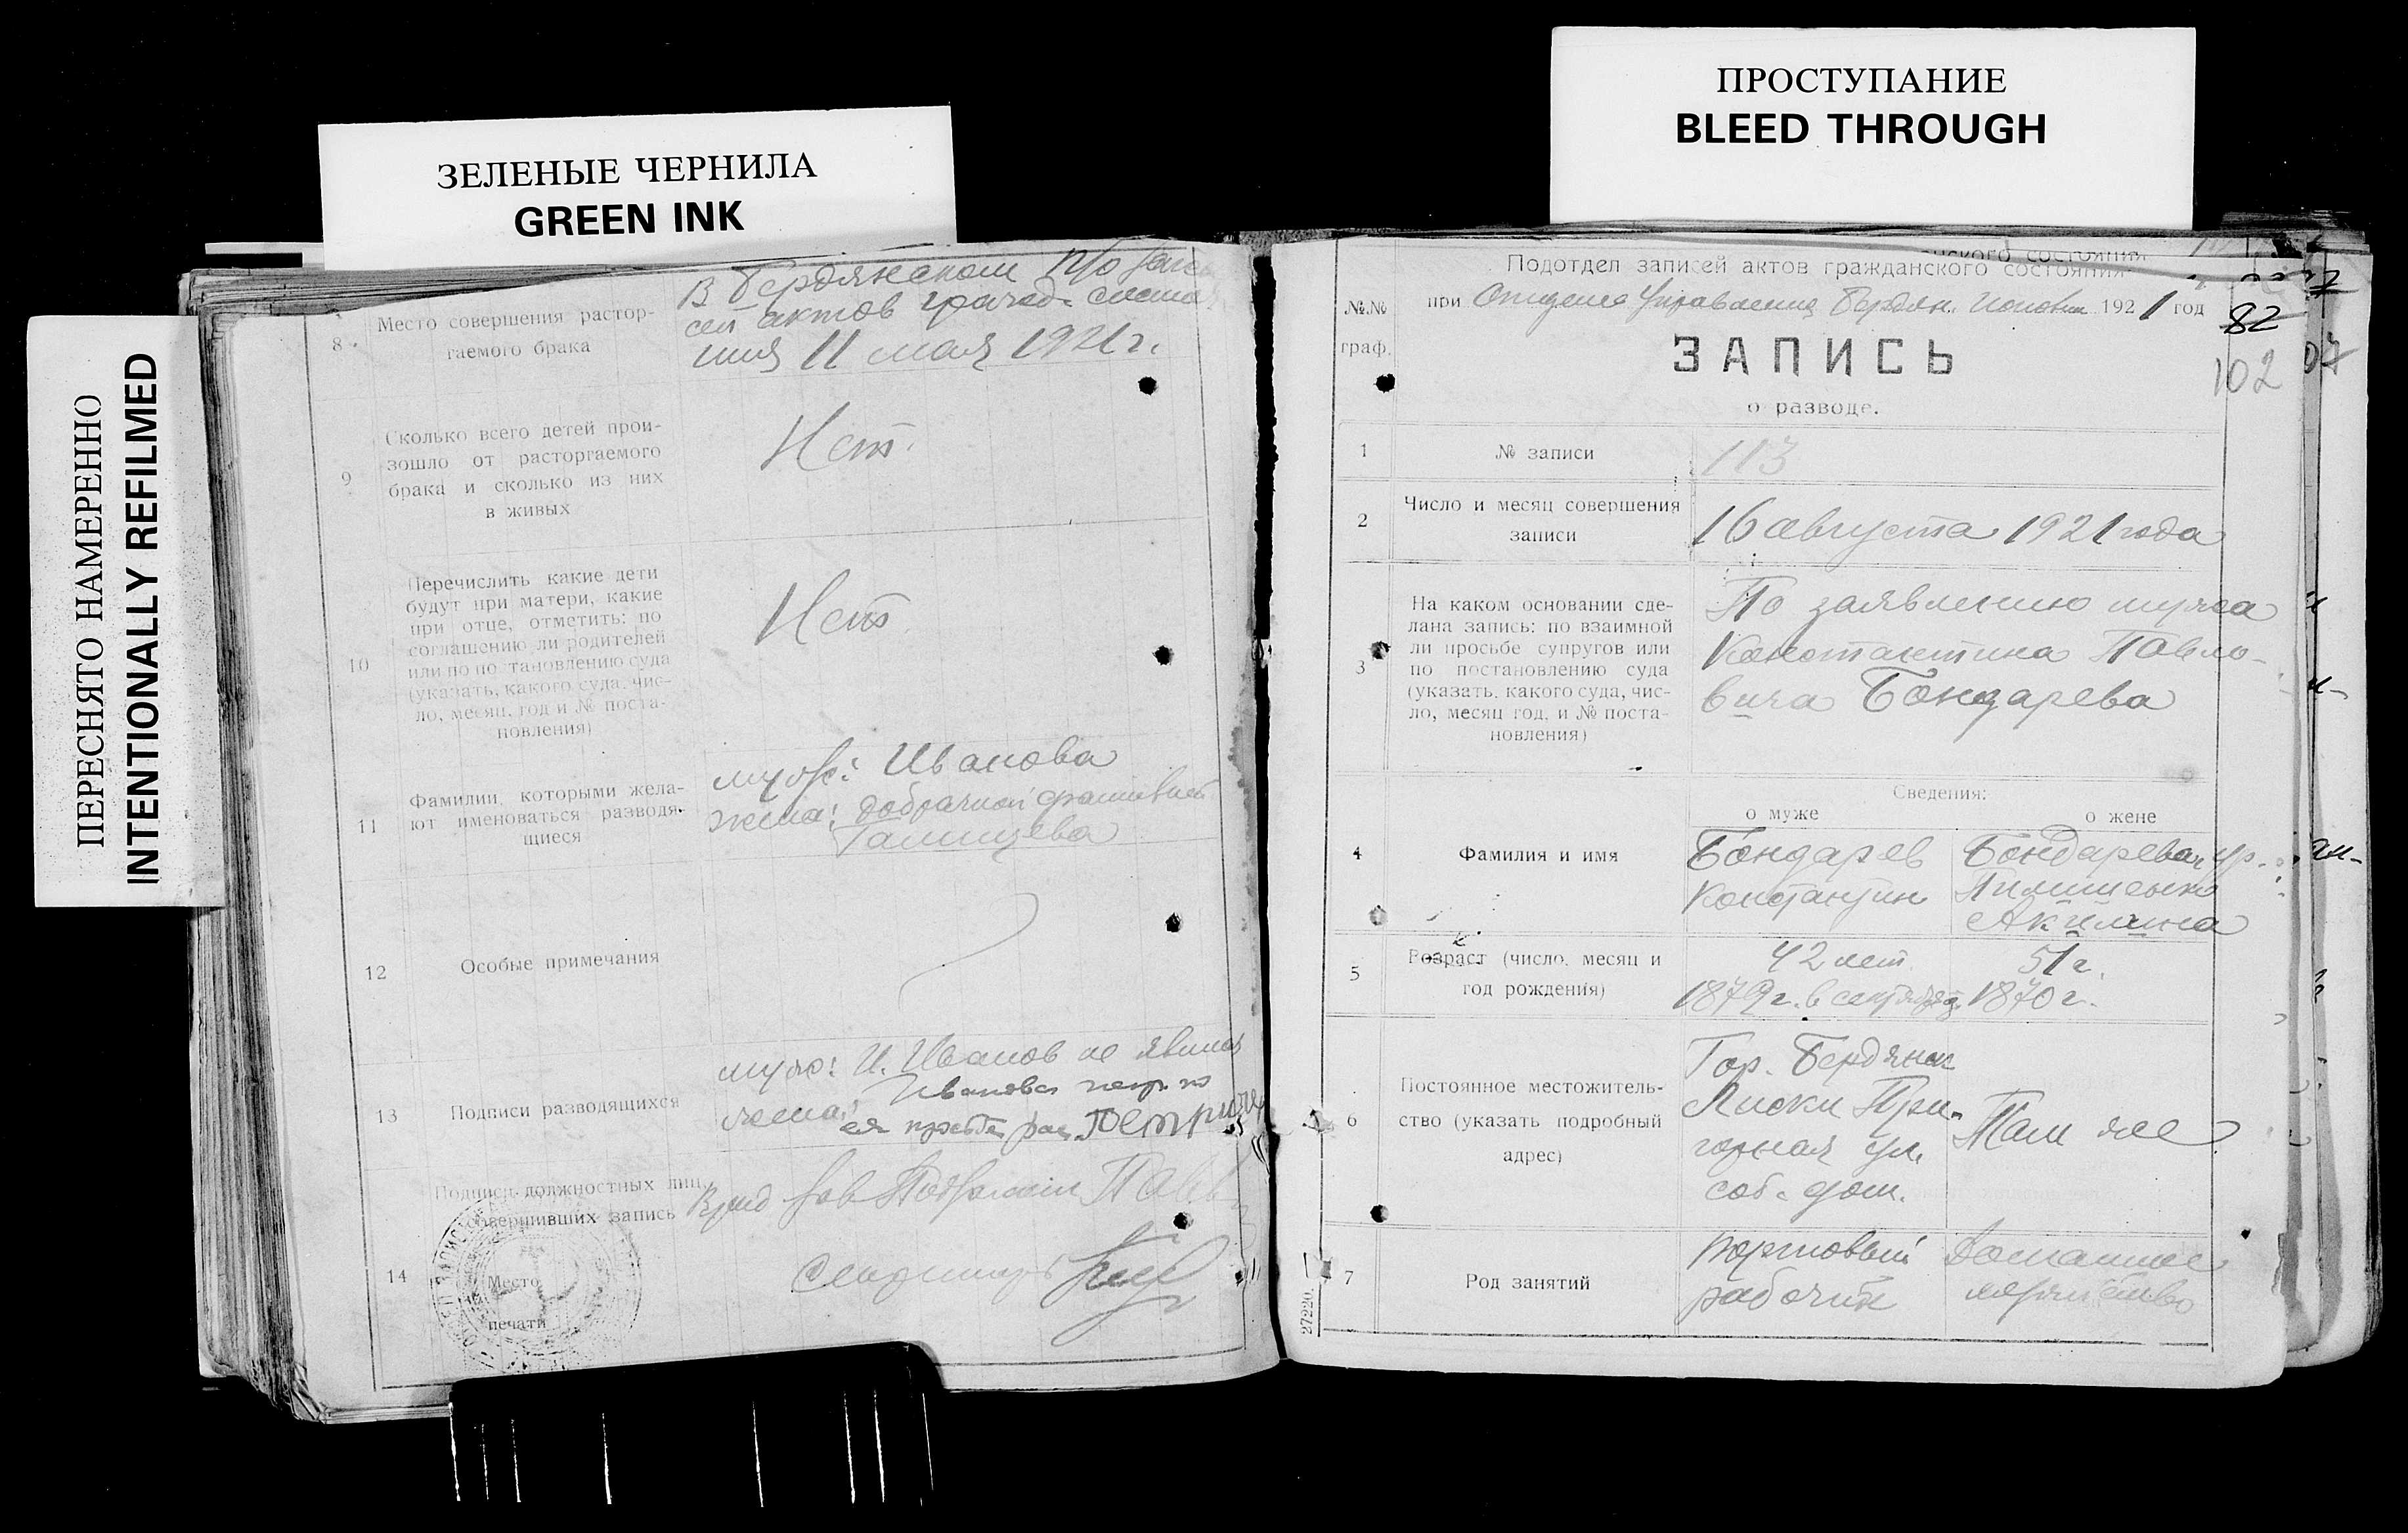 ЗЕЛЕНЫЕ ЧЕРНИЛА
GREEN INK
ПРОСТУПАНИЕ
BLEED THROUGH
ПЕРЕСНЯТО НАМЕРЕННО
INTENTIONALLY REFILMED
8
Место совершения растор-
гаемого брака
В Бердянском п/о
актов гражд.
11 мая 1921 г.
9
Сколько всего детей прои-
зошло от расторгаемого
брака и сколько из них
в живых
Нет.
10
Перечислить какие дети
будут при матери, какие
при отце, отметить: по
соглашению ли родителей
или по по тановлению суда
(указать, какого суда, чис-
ло, месяц, год и № поста-
новления)
Нет
11
Фамилии, которыми жела-
ют именоваться разводя-
щиеся
муж: Иванова
жена: добрачной
12
Особые примечания
13
Подписи разводящихся
муж: И. Иванов не явился
жена: Иванова негр. по
ея просьбе рас.
14
Подписи должностных лиц,
совершивших запись
Врид Зав
Место
печати
Подотдел записей актов гражданского состояния
№№
граф.
при Отделе Управления Бердян. 1921 год
82
102
ЗАПИСЬ
о разводе.
1
№ записи
113
2
Число и месяц совершения
записи
16 августа 1921 года
3
На каком основании сде-
лана запись: по взаимной
ли просьбе супругов или
по постановлению суда
(указать, какого суда, чис-
ло, месяц год, и № поста-
новления)
По заявлению мужа
Константина Павло-
вича Бондарева
Сведения:
о муже
о жене
4
Фамилия и имя
Бондарев
Константин
Бондарева ур.
Акилина
5
Возраст (число, месяц и
год рождения)
42 лет
1879 г. в сентября
51 г.
1870 г.
6
Постоянное местожитель-
ство (указать подробный
адрес)
Гор. Бердянск
Лиски При-
горная ул.
соб. дом.
Там же
7
Род занятий
Портовый
рабочий
Домашнее
27220.